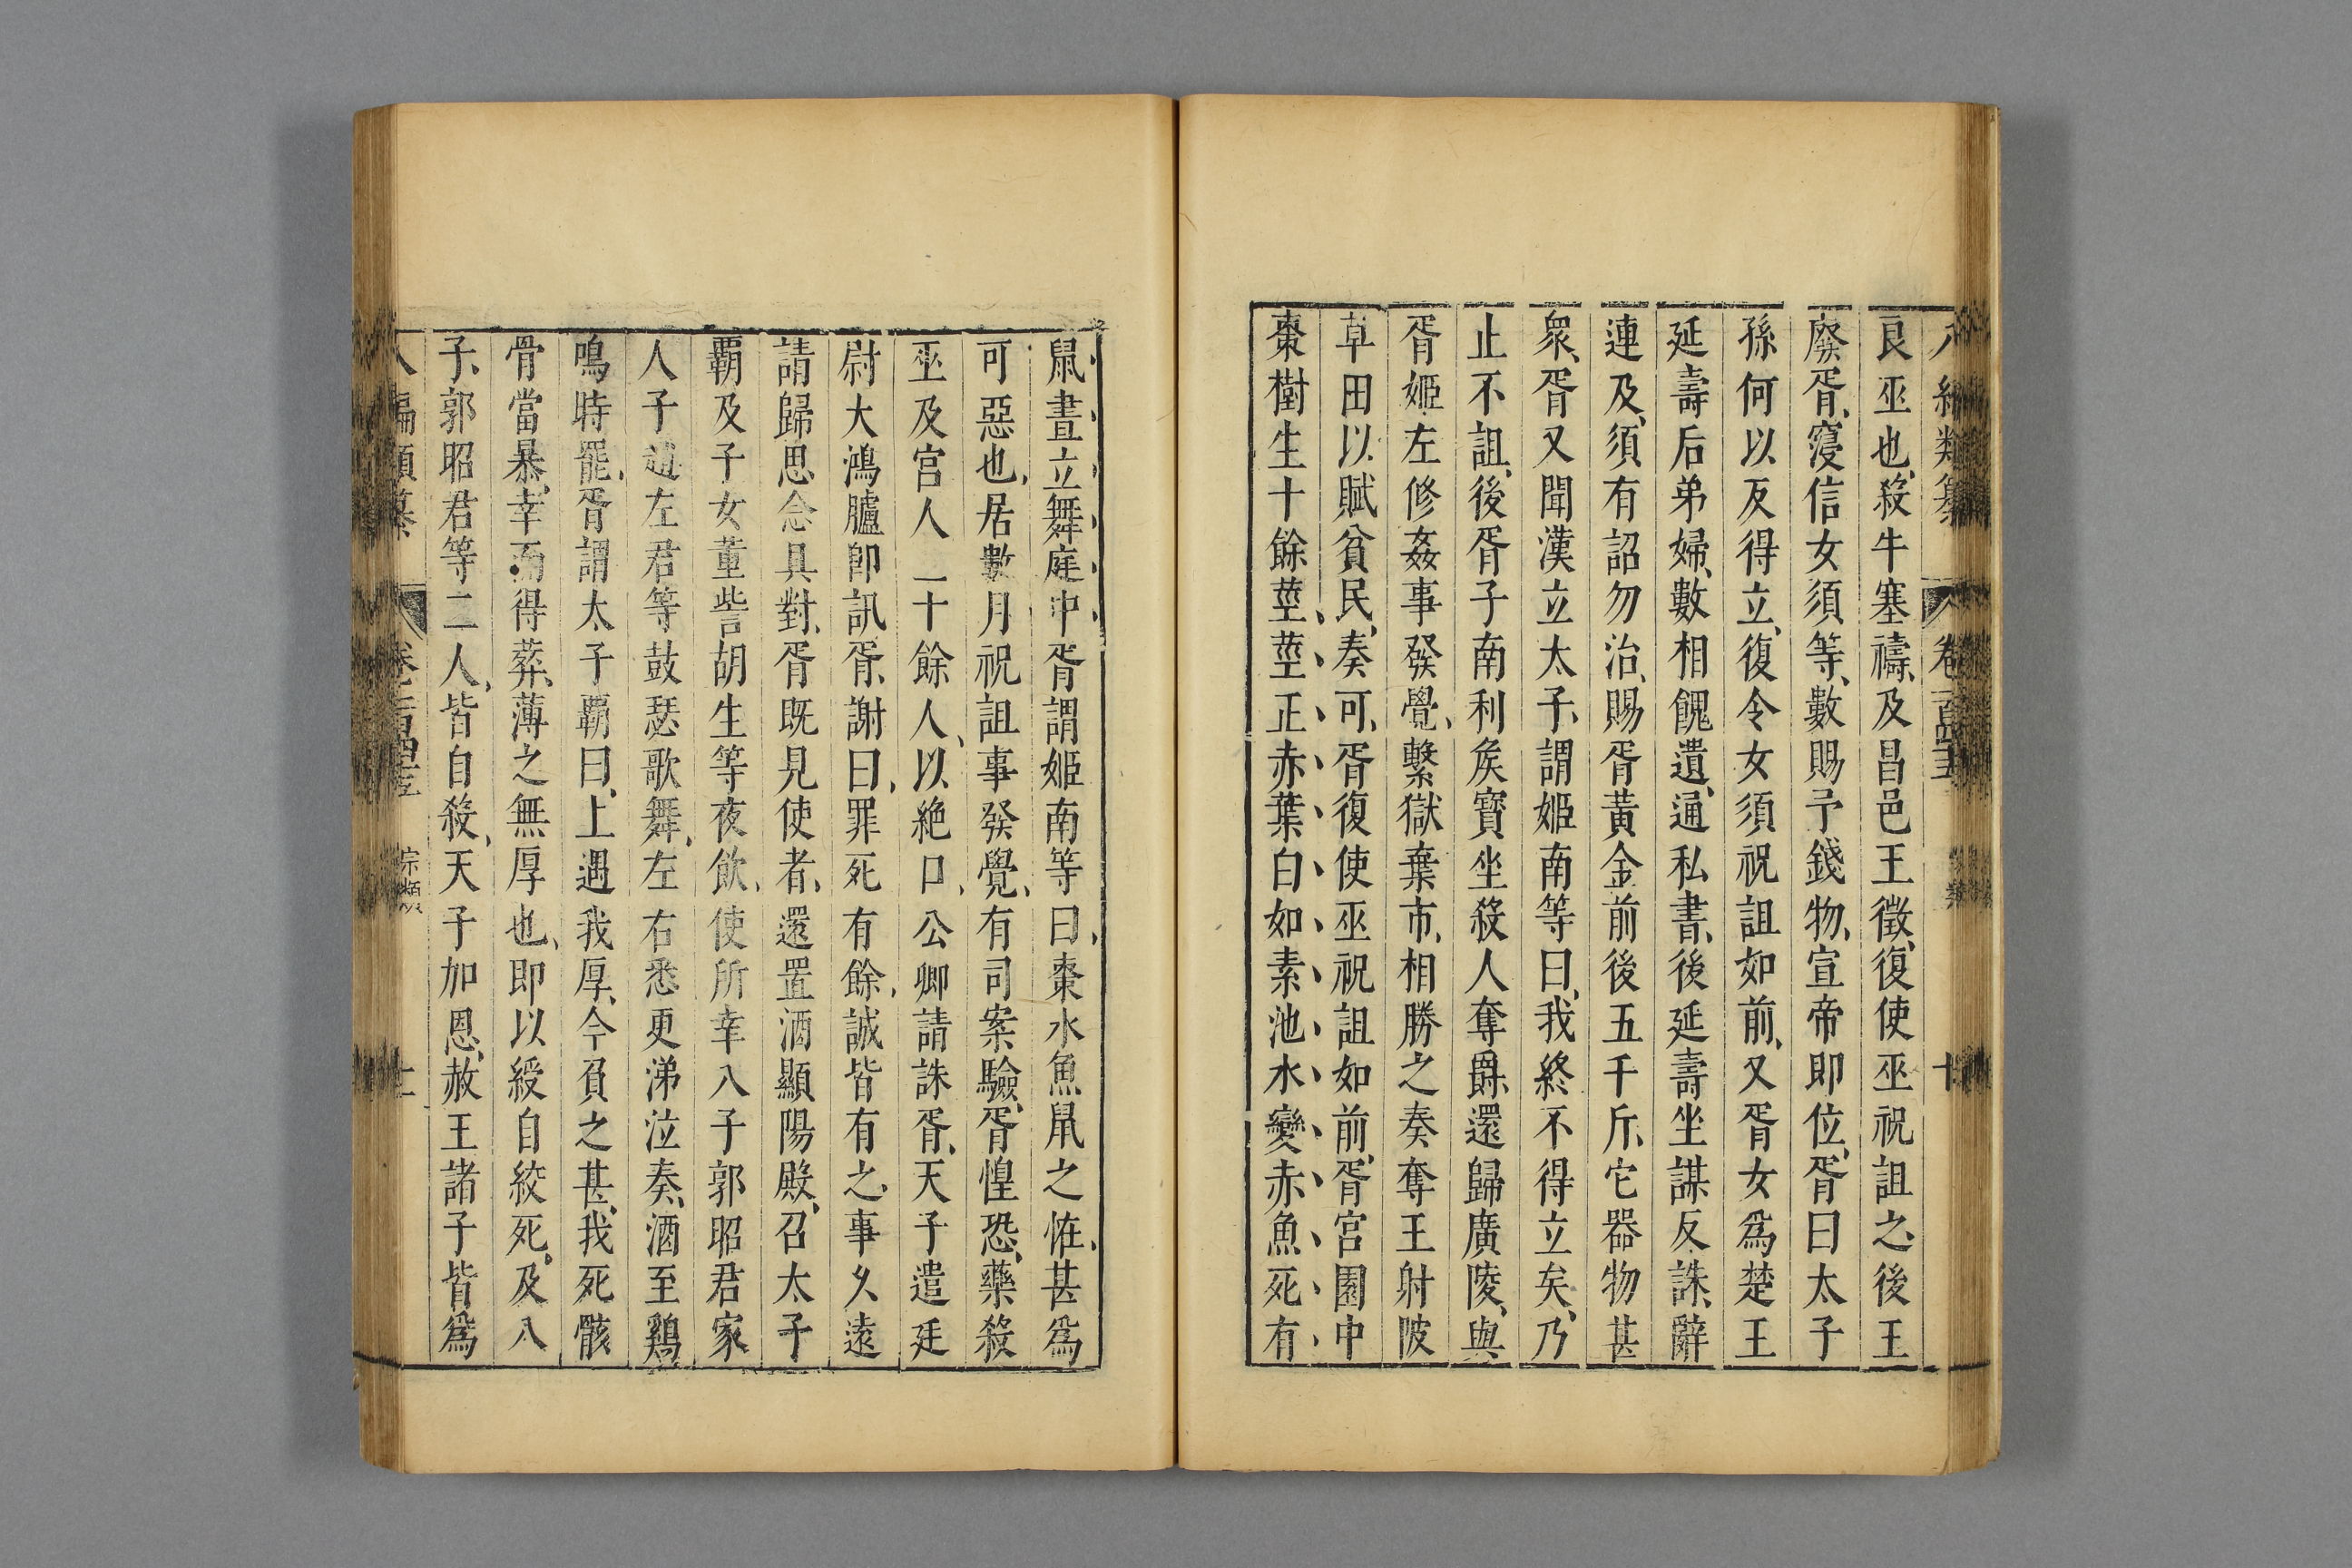 良巫也、殺牛塞禱、及昌邑王徵、復使巫祝詛之、後王
廢、胥寖信女須等、數賜予錢物、宣帝即位、胥曰太子
孫何以反得立、復令女須祝詛如前、又胥女爲楚王
延壽后弟婦、數相餽遺、通私書、後延壽坐謀反誅、辭
連及、須有詔勿治、賜胥黃金前後五千斤、它器物甚
衆、胥又聞漢立太子、謂姬南等曰、我終不得立矣、乃
止不詛、後胥子南利矦寶坐殺人奪爵、還歸廣陵、與
胥姬左修姦事發覺、繫獄棄市、相勝之奏奪王射陂
草田以賦貧民、奏可、胥復使巫祝詛如前、胥宮園中
棗樹生十餘莖、莖正赤、葉白如素、池水變赤、魚死、有
鼠晝立舞庭中、胥謂姬南等曰、棗水魚鼠之恠、甚爲
可惡也、居數月、祝詛事發覺、有司案驗、胥惶恐、藥殺
巫及宮人二十餘人、以絶口、公卿請誅胥、天子遣廷
尉大鴻臚卽訊、胥謝曰、罪死有餘、誠皆有之、事久遠
請歸思念具對、胥既見使者、還置酒顯陽殿、召太子
霸及子女董訾胡生等夜飲、使所幸八子郭昭君家
人子趙左君等鼓瑟歌舞、左右悉更涕泣奏、酒至鷄
鳴時罷、胥謂太子霸曰、上遇我厚、今負之甚、我死骸
骨當暴、幸而得葬、薄之無厚也、即以綬自絞死、及八
子郭昭君等二人、皆自殺、天子加恩、赦王諸子皆爲